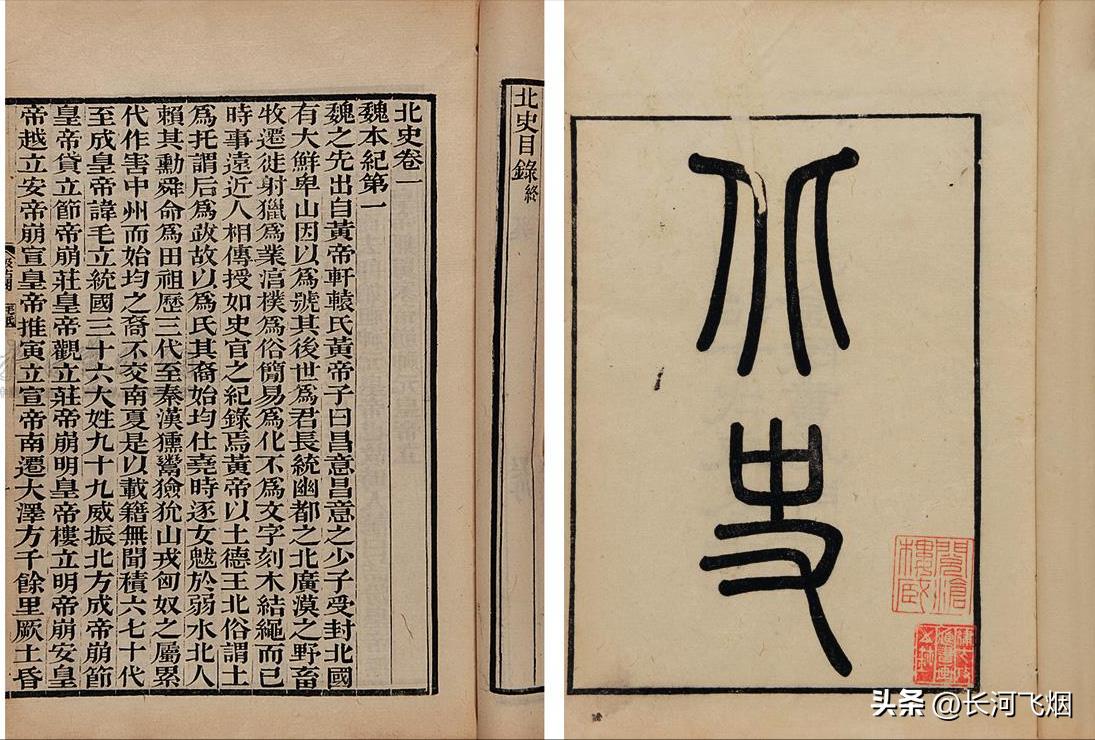 北史卷一
魏本紀第一
魏之先出自黃帝軒轅氏黃帝子曰昌意昌意之少子受封北國
有大鮮卑山因以爲號其後世爲君長統幽都之北廣漠之野畜
牧遷徙射獵爲業淳樸爲俗簡易爲化不爲文字刻木結繩而已
時事遠近人相傳授如史官之紀錄焉黃帝以土德王北俗謂土
爲托謂后爲跋故以爲氏其裔始均仕堯時逐女魃於弱水北人
賴其勳舜命爲田祖歷三代至秦漢獯鬻獫狁山戎匈奴之屬累
代作害中州而始均之裔不交南夏是以載籍無聞積六七十代
至成皇帝諱毛立統國三十六大姓九十九威振北方成帝崩節
皇帝貸立節帝崩莊皇帝觀立莊帝崩明皇帝樓立明帝崩安皇
帝越立安帝崩宣皇帝推寅立宣帝南遷大澤方千餘里厥土昏
北史目錄終
北史
头条 @长河飞烟